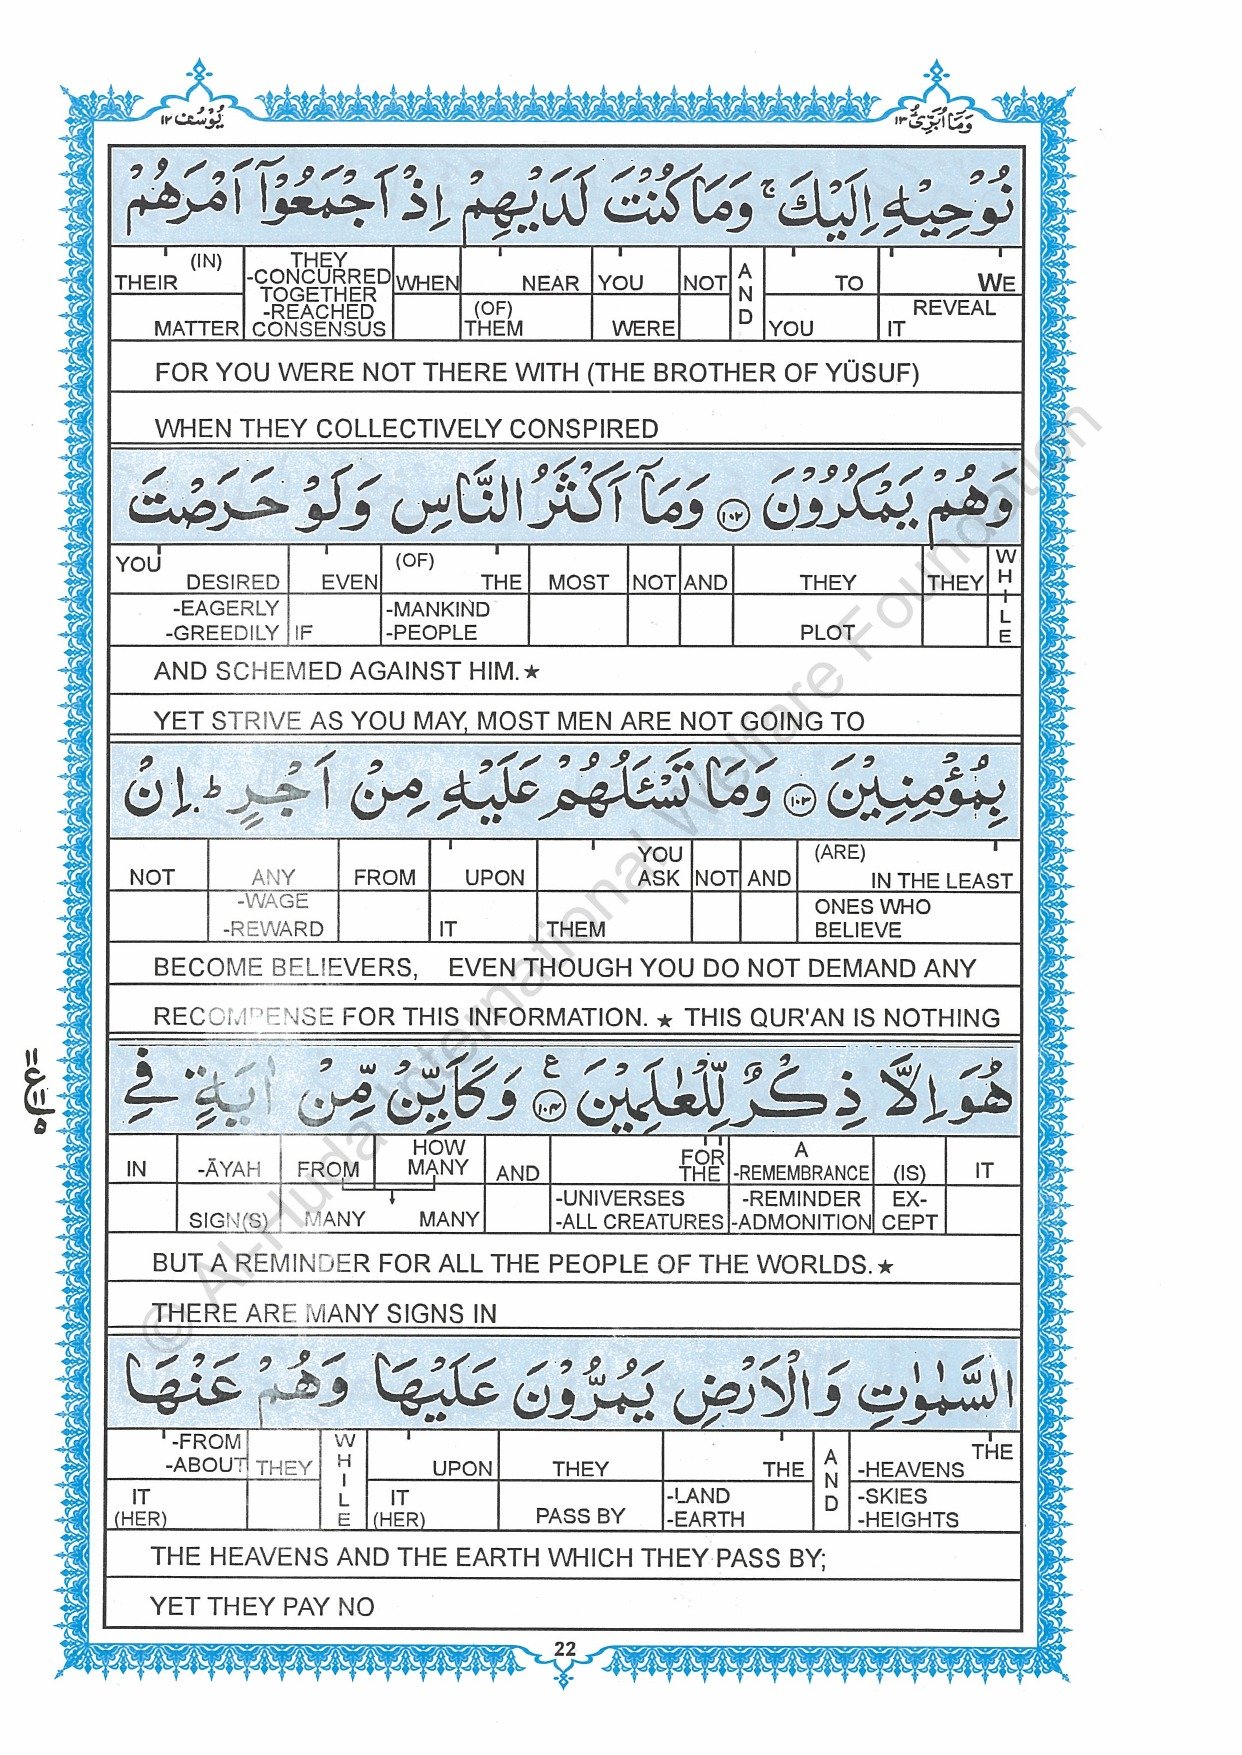 وَمَاۤ اُبَرِّئُ ١٣
يُوْسُف ١٢
نُوْحِيْهِ اِلَيْكَ ۚ وَمَا كُنْتَ لَدَيْهِمْ اِذْ اَجْمَعُوْۤا اَمْرَهُمْ
(IN) THEY
THEIR -CONCURRED WHEN NEAR YOU NOT AND TO WE
TOGETHER
-REACHED (OF) REVEAL
MATTER CONSENSUS THEM WERE YOU IT
FOR YOU WERE NOT THERE WITH (THE BROTHER OF YÜSUF)
WHEN THEY COLLECTIVELY CONSPIRED
وَهُمْ يَمْكُرُوْنَ ١٠٢ وَمَاۤ اَكْثَرُ النَّاسِ وَلَوْ حَرَصْتَ
YOU (OF)
DESIRED EVEN THE MOST NOT AND THEY THEY WHILE
-EAGERLY -MANKIND
-GREEDILY IF -PEOPLE PLOT
AND SCHEMED AGAINST HIM.★
YET STRIVE AS YOU MAY, MOST MEN ARE NOT GOING TO
بِمُؤْمِنِيْنَ ١٠٣ وَمَا تَسْـَٔلُهُمْ عَلَيْهِ مِنْ اَجْرٍ ؕ اِنْ
YOU (ARE)
NOT ANY FROM UPON ASK NOT AND IN THE LEAST
-WAGE ONES WHO
-REWARD IT THEM BELIEVE
BECOME BELIEVERS, EVEN THOUGH YOU DO NOT DEMAND ANY
RECOMPENSE FOR THIS INFORMATION. ★ THIS QUR'AN IS NOTHING
هُوَ اِلَّا ذِكْرٌ لِّلْعٰلَمِيْنَ ١٠٤ ع وَكَاَيِّنْ مِّنْ اٰيَةٍ فِي
١١
ع
١١
٥
HOW FOR A
IN -ĀYAH FROM MANY AND THE -REMEMBRANCE (IS) IT
-UNIVERSES -REMINDER EX-
SIGN(S) MANY MANY -ALL CREATURES -ADMONITION CEPT
BUT A REMINDER FOR ALL THE PEOPLE OF THE WORLDS.★
THERE ARE MANY SIGNS IN
السَّمٰوٰتِ وَالْاَرْضِ يَمُرُّوْنَ عَلَيْهَا وَهُمْ عَنْهَا
-FROM THE
-ABOUT THEY WHILE UPON THEY THE AND -HEAVENS
IT IT -LAND -SKIES
(HER) (HER) PASS BY -EARTH -HEIGHTS
THE HEAVENS AND THE EARTH WHICH THEY PASS BY;
YET THEY PAY NO
22
© Al-Huda International Welfare Foundation